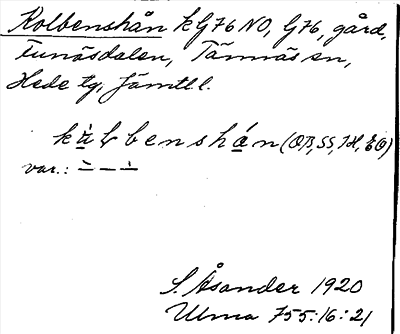 Kolbenshån k G76 NO, G76, gård,
Funäsdalen, Tännäs sn,
Hede tg, Jämtl l.
kålbenshån (OB, SS, JH, EO)
var.:
S. Åsander 1920
Ulma 755:16:21